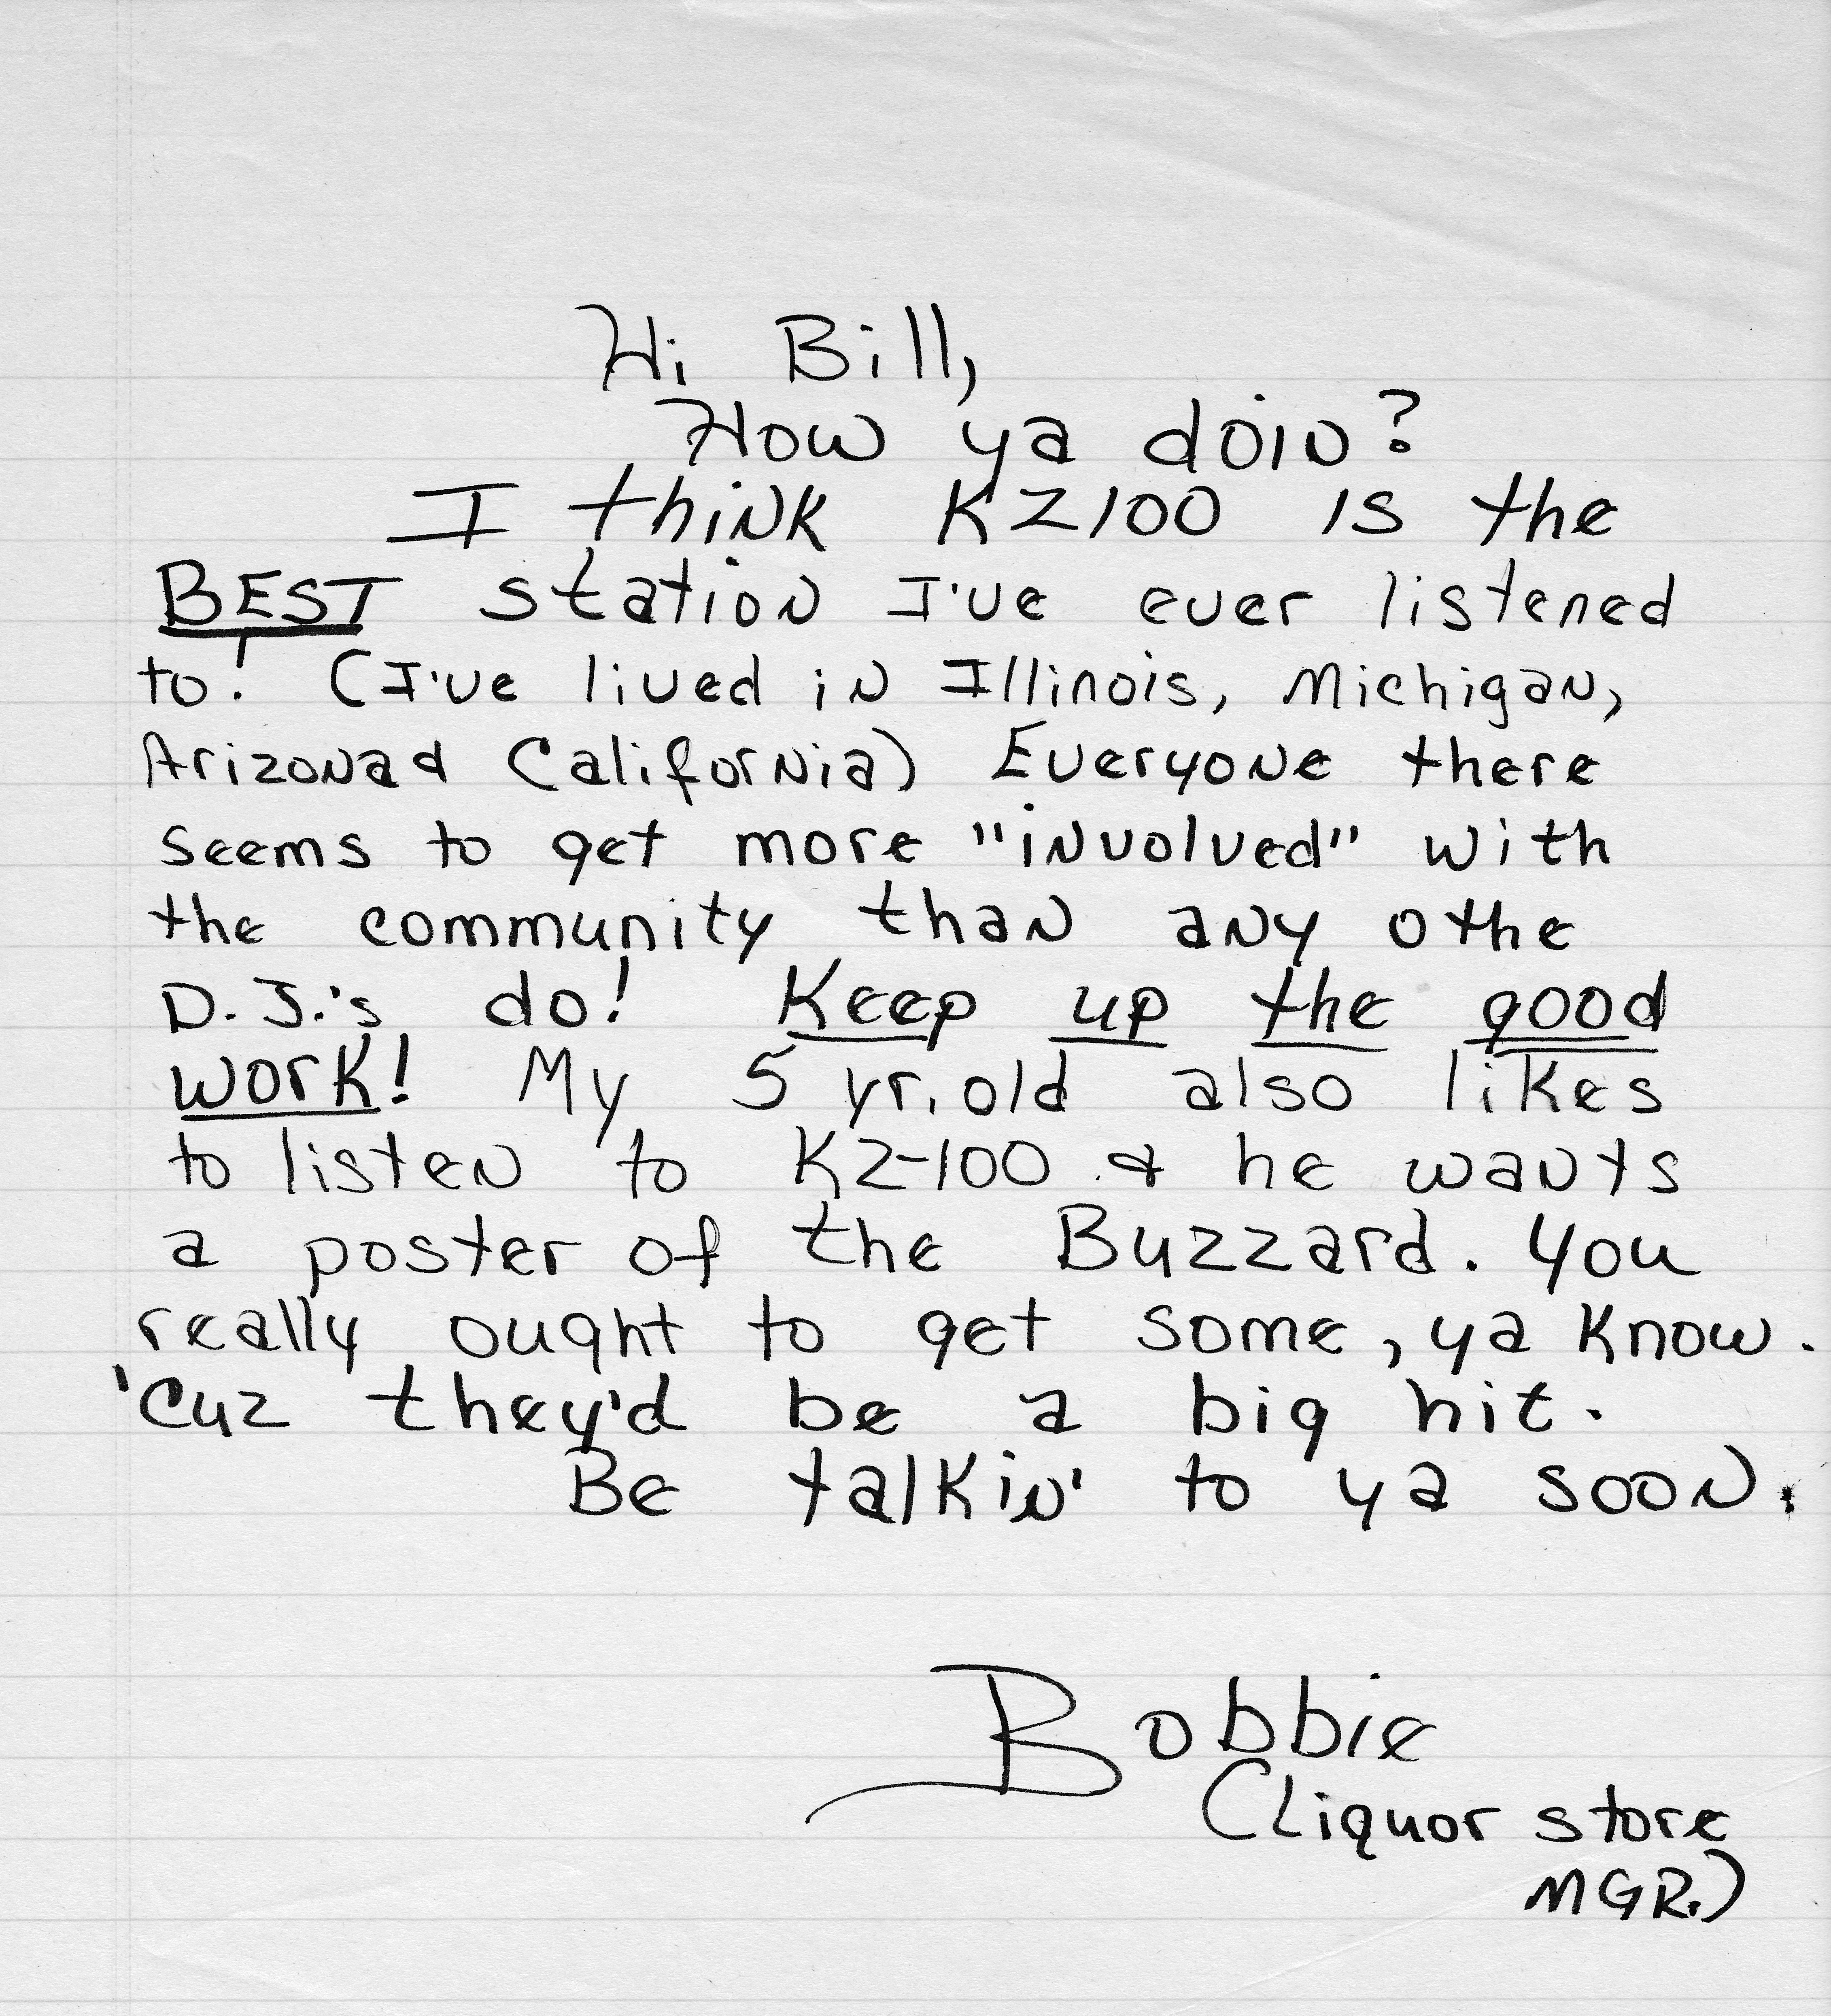 Hi Bill,
How ya doin?
I think KZ100 is the
BEST station I've ever listened
to! (I've lived in Illinois, Michigan,
Arizona & California) Everyone there
seems to get more "involved" with
the community than any othe
D.J.'s do! Keep up the good
work! My 5 yr. old also likes
to listen to KZ-100 & he wants
a poster of the Buzzard. You
really ought to get some, ya know.
'Cuz they'd be a big hit.
Be talkin' to ya soon.
Bobbie
(Liquor store
MGR.)